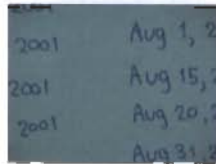 2001 Aug 1, 2
2001 Aug 15,
2001 Aug 20, 2
Aug 31,